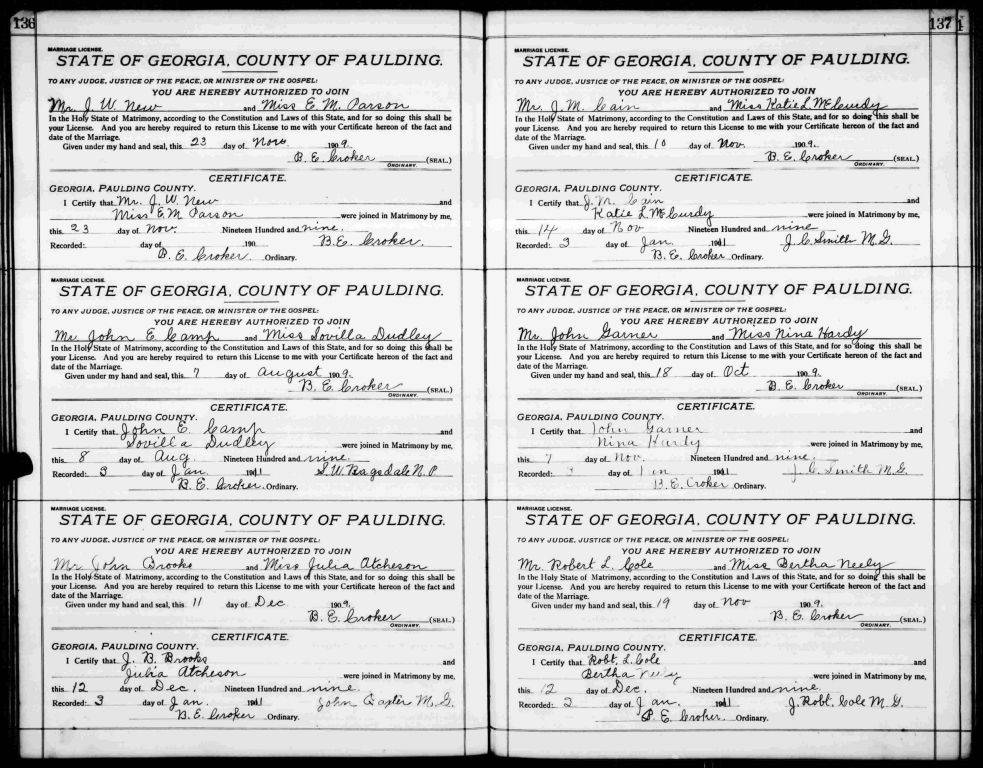 136
MARRIAGE LICENSE.
STATE OF GEORGIA, COUNTY OF PAULDING.
TO ANY JUDGE, JUSTICE OF THE PEACE, OR MINISTER OF THE GOSPEL:
YOU ARE HEREBY AUTHORIZED TO JOIN
Mr. J. W. New and Miss E. M. Parson
In the Holy State of Matrimony, according to the Constitution and Laws of this State, and for so doing this shall be
your License. And you are hereby required to return this License to me with your Certificate hereon of the fact and
date of the Marriage.
Given under my hand and seal, this 23 day of Nov. 1909.
B. E. Croker (SEAL.)
ORDINARY.
CERTIFICATE.
GEORGIA, PAULDING COUNTY.
I Certify that Mr. J. W. New and
Miss E. M. Parson were joined in Matrimony by me,
this 23 day of Nov. Nineteen Hundred and nine.
Recorded: day of 190 B. E. Croker.
B. E. Croker. Ordinary.
MARRIAGE LICENSE.
STATE OF GEORGIA, COUNTY OF PAULDING.
TO ANY JUDGE, JUSTICE OF THE PEACE, OR MINISTER OF THE GOSPEL:
YOU ARE HEREBY AUTHORIZED TO JOIN
Mr. John E. Camp and Miss Sovilla Dudley
In the Holy State of Matrimony, according to the Constitution and Laws of this State, and for so doing this shall be
your License. And you are hereby required to return this License to me with your Certificate hereon of the fact and
date of the Marriage.
Given under my hand and seal, this 7 day of August 1909.
B. E. Croker (SEAL.)
ORDINARY.
CERTIFICATE.
GEORGIA, PAULDING COUNTY.
I Certify that John E. Camp and
Sovilla Dudley were joined in Matrimony by me,
this 8 day of Aug. Nineteen Hundred and nine.
Recorded: 3 day of Jan. 1911 S. W. Ragsdale N. P.
B. E. Croker. Ordinary.
MARRIAGE LICENSE.
STATE OF GEORGIA, COUNTY OF PAULDING.
TO ANY JUDGE, JUSTICE OF THE PEACE, OR MINISTER OF THE GOSPEL:
YOU ARE HEREBY AUTHORIZED TO JOIN
Mr John Brooks and Miss Julia Atcheson
In the Holy State of Matrimony, according to the Constitution and Laws of this State, and for so doing this shall be
your License. And you are hereby required to return this License to me with your Certificate hereon of the fact and
date of the Marriage.
Given under my hand and seal, this 11 day of Dec 1909.
B. E. Croker (SEAL.)
ORDINARY.
CERTIFICATE.
GEORGIA, PAULDING COUNTY.
I Certify that J. B. Brooks and
Julia Atcheson were joined in Matrimony by me,
this 12 day of Dec. Nineteen Hundred and nine.
Recorded: 3 day of Jan. 1911 John M. G.
B. E. Croker Ordinary.
137
MARRIAGE LICENSE.
STATE OF GEORGIA, COUNTY OF PAULDING.
TO ANY JUDGE, JUSTICE OF THE PEACE, OR MINISTER OF THE GOSPEL:
YOU ARE HEREBY AUTHORIZED TO JOIN
Mr. J. M. Cain and Miss Katie L McCurdy
In the Holy State of Matrimony, according to the Constitution and Laws of this State, and for so doing this shall be
your License. And you are hereby required to return this License to me with your Certificate hereon of the fact and
date of the Marriage.
Given under my hand and seal, this 10 day of Nov. 1909.
B. E. Croker (SEAL.)
ORDINARY.
CERTIFICATE.
GEORGIA, PAULDING COUNTY.
I Certify that J. M. Cain and
Katie L McCurdy were joined in Matrimony by me,
this 14 day of Nov Nineteen Hundred and nine
Recorded: 3 day of Jan. 1911 J. C. Smith M. G.
B. E. Croker Ordinary.
MARRIAGE LICENSE.
STATE OF GEORGIA, COUNTY OF PAULDING.
TO ANY JUDGE, JUSTICE OF THE PEACE, OR MINISTER OF THE GOSPEL:
YOU ARE HEREBY AUTHORIZED TO JOIN
Mr. John Garner and Miss Nina Hardy
In the Holy State of Matrimony, according to the Constitution and Laws of this State, and for so doing this shall be
your License. And you are hereby required to return this License to me with your Certificate hereon of the fact and
date of the Marriage.
Given under my hand and seal, this 18 day of Oct 1909.
B. E. Croker (SEAL.)
ORDINARY.
CERTIFICATE.
GEORGIA, PAULDING COUNTY.
I Certify that John Garner and
Nina Hardy were joined in Matrimony by me,
this 7 day of Nov. Nineteen Hundred and nine.
Recorded: 3 day of Jan 1911 J. C. Smith M. G.
B. E. Croker Ordinary.
MARRIAGE LICENSE.
STATE OF GEORGIA, COUNTY OF PAULDING.
TO ANY JUDGE, JUSTICE OF THE PEACE, OR MINISTER OF THE GOSPEL:
YOU ARE HEREBY AUTHORIZED TO JOIN
Mr. Robert L. Cole and Miss Bertha Neely
In the Holy State of Matrimony, according to the Constitution and Laws of this State, and for so doing this shall be
your License. And you are hereby required to return this License to me with your Certificate hereon of the fact and
date of the Marriage.
Given under my hand and seal, this 19 day of Nov 1909.
B. E. Croker (SEAL.)
ORDINARY.
CERTIFICATE.
GEORGIA, PAULDING COUNTY.
I Certify that Robt. L. Cole and
Bertha Neely were joined in Matrimony by me,
this 12 day of Dec. Nineteen Hundred and nine
Recorded: 2 day of Jan. 1911 J. Robt. Cole M. G.
B. E. Croker. Ordinary.